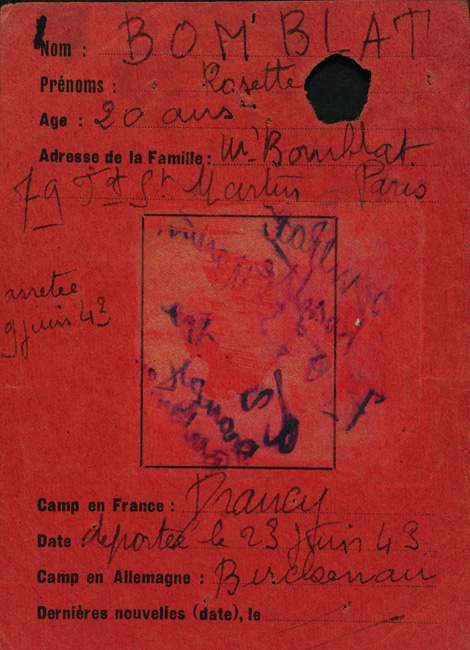 Nom : BOM'BLAT
Prénoms : Rosette
Age : 20 ans
Adresse de la Famille : Mr Bomblat
79 Fd St Martin - Paris
arretée
9 juin 43
Camp en France : Drancy
Date : deportée le 23 Juin 43
Camp en Allemagne : Birckenau
Dernières nouvelles (date), le